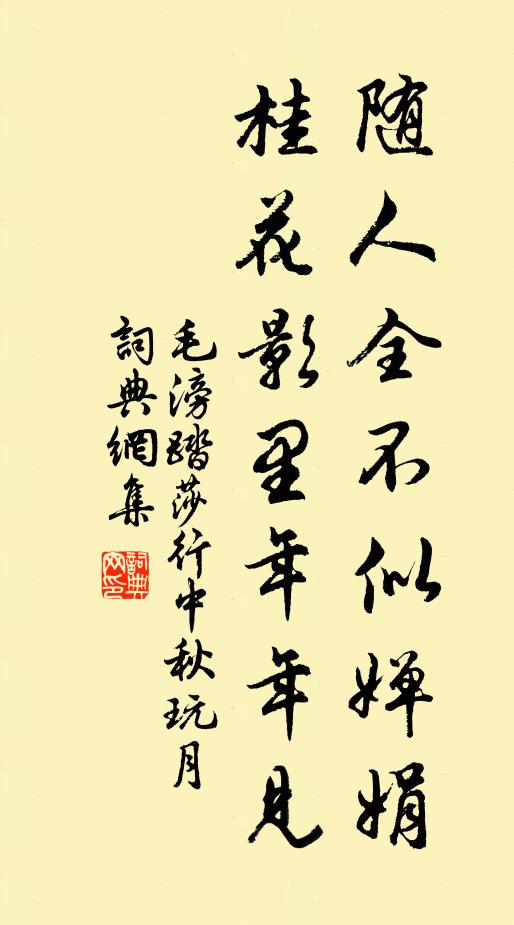 随人全不似婵娟
桂花影里年年見
毛滂踏莎行中秋玩月
詞典網集
詞典網印